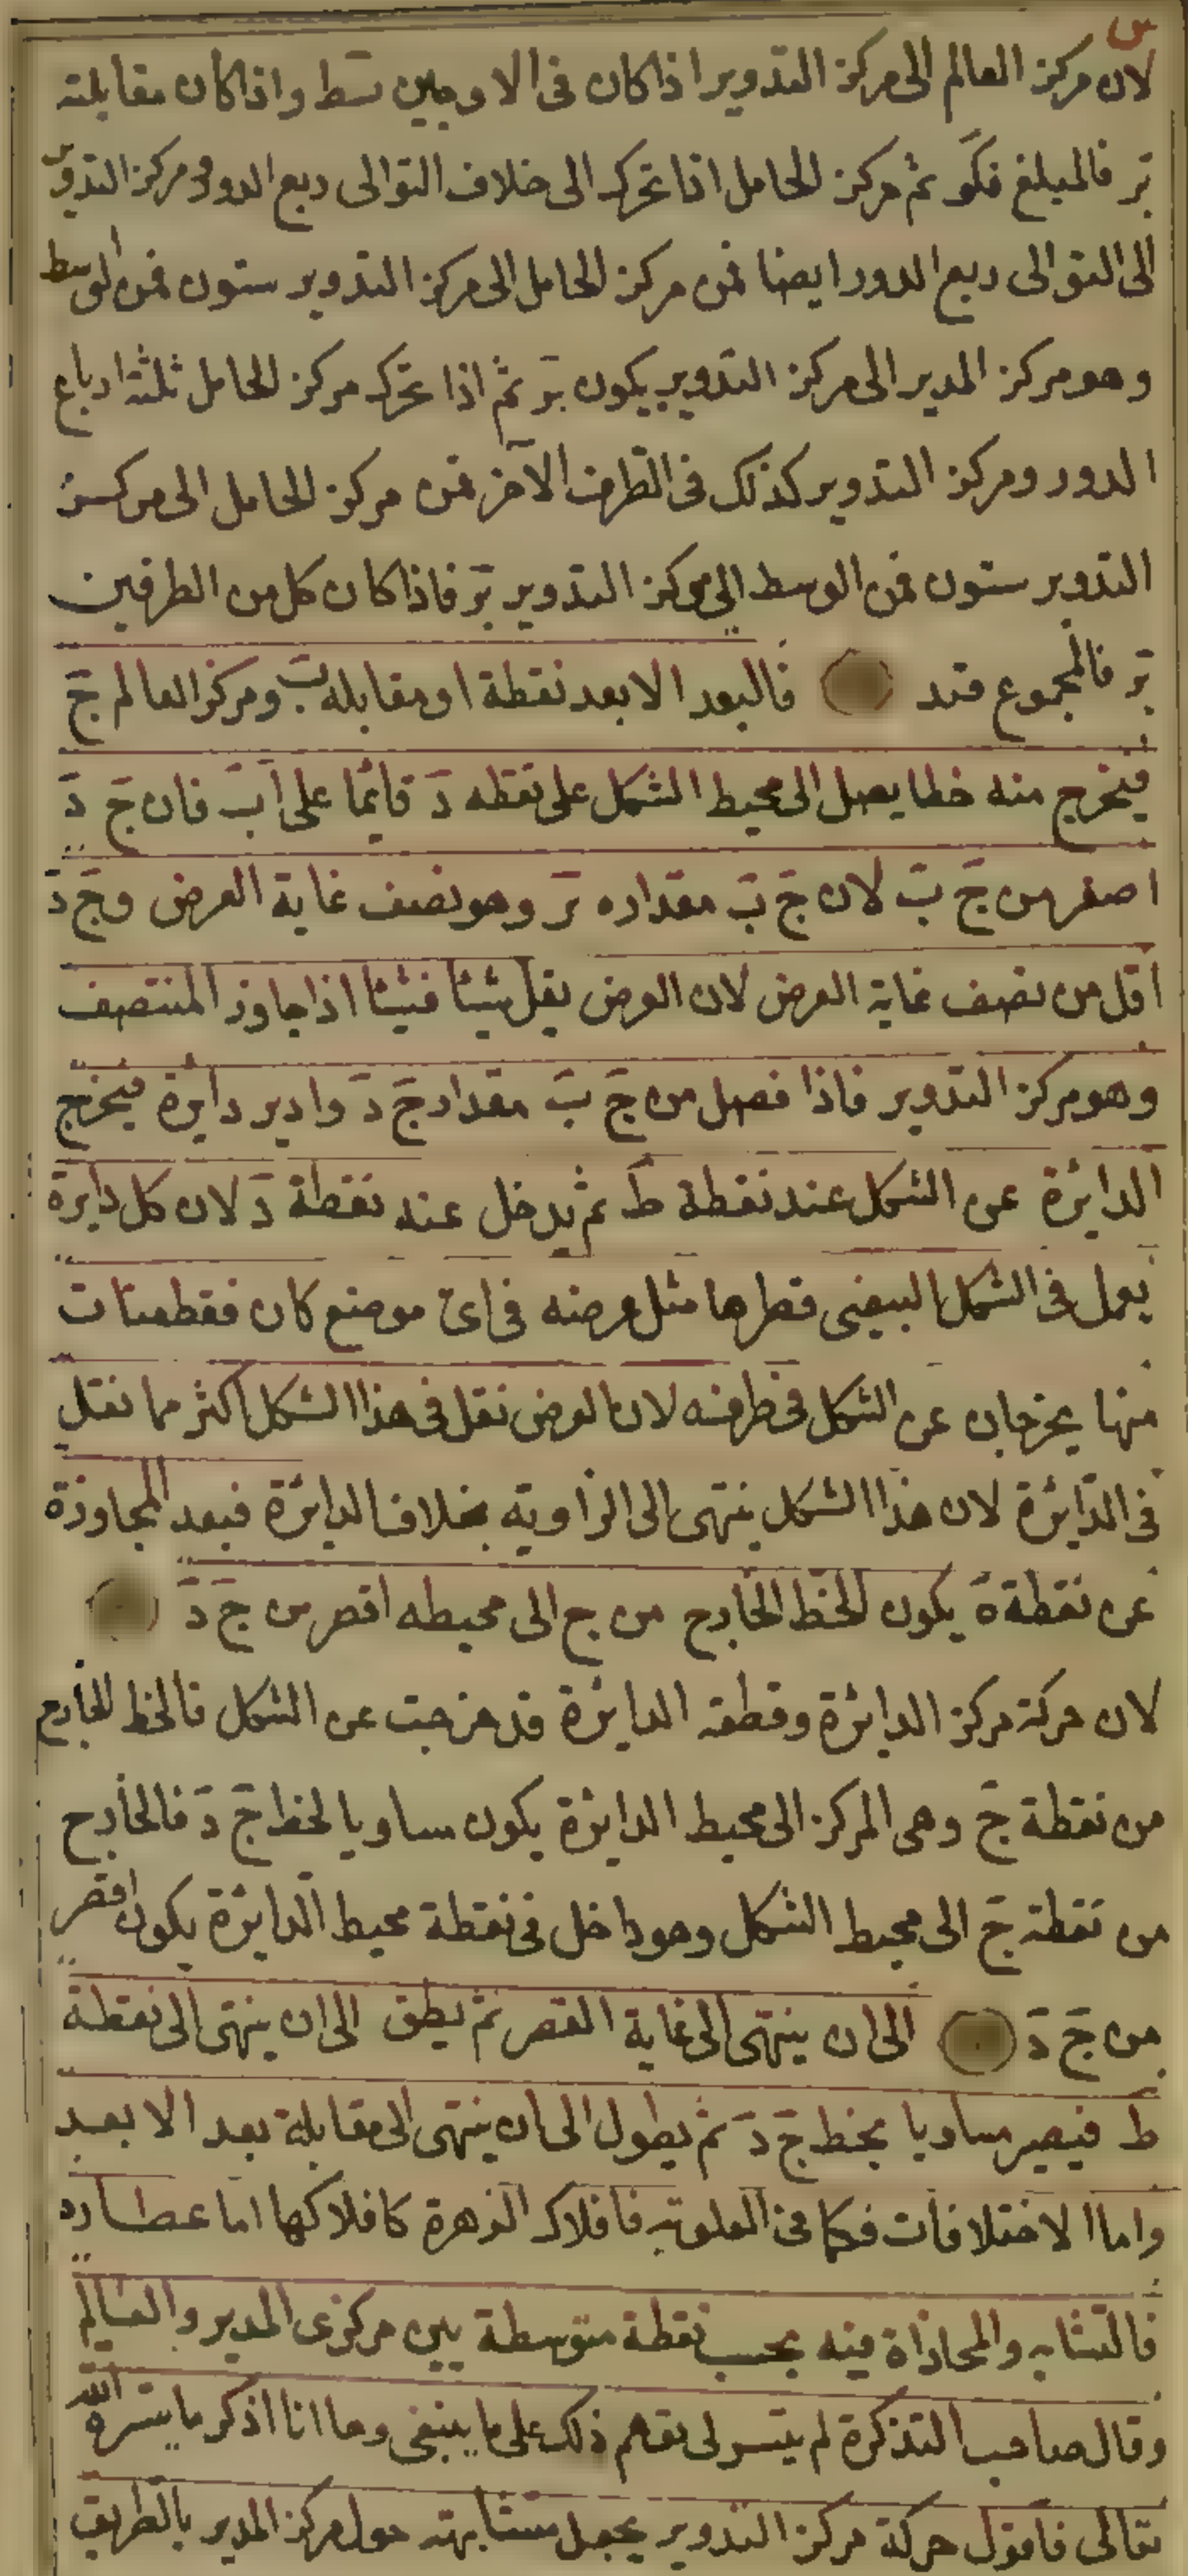 لان مركز العالم الى مركز التدوير اذا كان فى الاوجين سط واذا كان مقابلته
نر فالمبلغ قكو ثم مركز الحامل اذا تحرك الى خلاف التوالى ربع الدور ومركز التدوير
الى التوالى ربع الدور ايضا فمن مركز الحامل الى مركز التدوير ستون فمن الوسط
وهو مركز المدير الى مركز التدوير يكون نر ثم اذا تحرك مركز الحامل ثلثة ارباع
الدور ومركز التدوير كذلك فى الطرف الآخر فمن مركز الحامل الى مركز
التدوير ستون فمن الوسط الى مركز التدوير نر فاذا كان كل من الطرفين
نر فالمجموع قند فالبعد الابعد نقطة ا ومقابله ب ومركز العالم ج
فيخرج منه خطا يصل الى محيط الشكل على نقطه د قائما على اب فان ج د
اصغر من ج ب لان ج ب مقداره نر وهو نصف غاية العرض وج د
اقل من نصف غاية العرض لان العرض يقل شيئا فشيئا اذا جاوز المنتصف
وهو مركز التدوير فاذا فصل من ج ب مقدار ج د وادير دايرة فيخرج
الدائرة عن الشكل عند نقطة ط ثم يدخل عند نقطة د لان كل دايرة
يعمل فى الشكل البيضى قطرها مثل عرضه فى اى موضع كان فقطعتان
منها يخرجان عن الشكل فى طرفيه لان العرض نقل فى هذا الشكل اكثر مما نقل
فى الدائرة لان هذا الشكل ينتهى الى الزاوية بخلاف الدائرة فبعد المجاوزة
عن نقطة ه يكون الخط الخارج من ج الى محيطه اقصر من ج د
لان حركة مركز الدائرة وقطعة الدايرة قد خرجت عن الشكل فالخط الخارج
من نقطة ج وهى المركز الى محيط الدايرة يكون مساويا لخط ج د فالخارج
من نقطة ج الى محيط الشكل وهو داخل فى نقطة محيط الدايرة يكون اقصر
من ج د الى ان ينتهى الى غاية القصر ثم يطق الى ان ينتهى الى نقطة
ط فيصير مساويا بخط ج د ثم يطول الى ان ينتهى الى مقابلة بعد الابعد
واما الاختلافات فكما فى العلوية فافلاك الزهرة كافلاكها اما عطارد
فالتشابه والمحاذاة فيه بحسب نقطة متوسطة بين مركزى المدير والعالم
وقال صاحب التذكرة لم يتيسر لى تفهم ذلك على ما ينبغى وها انا اذكر ما يسره الله
تعالى فاقول حركة مركز التدوير يجعل متشابهة حول مركز المدير بالطريق